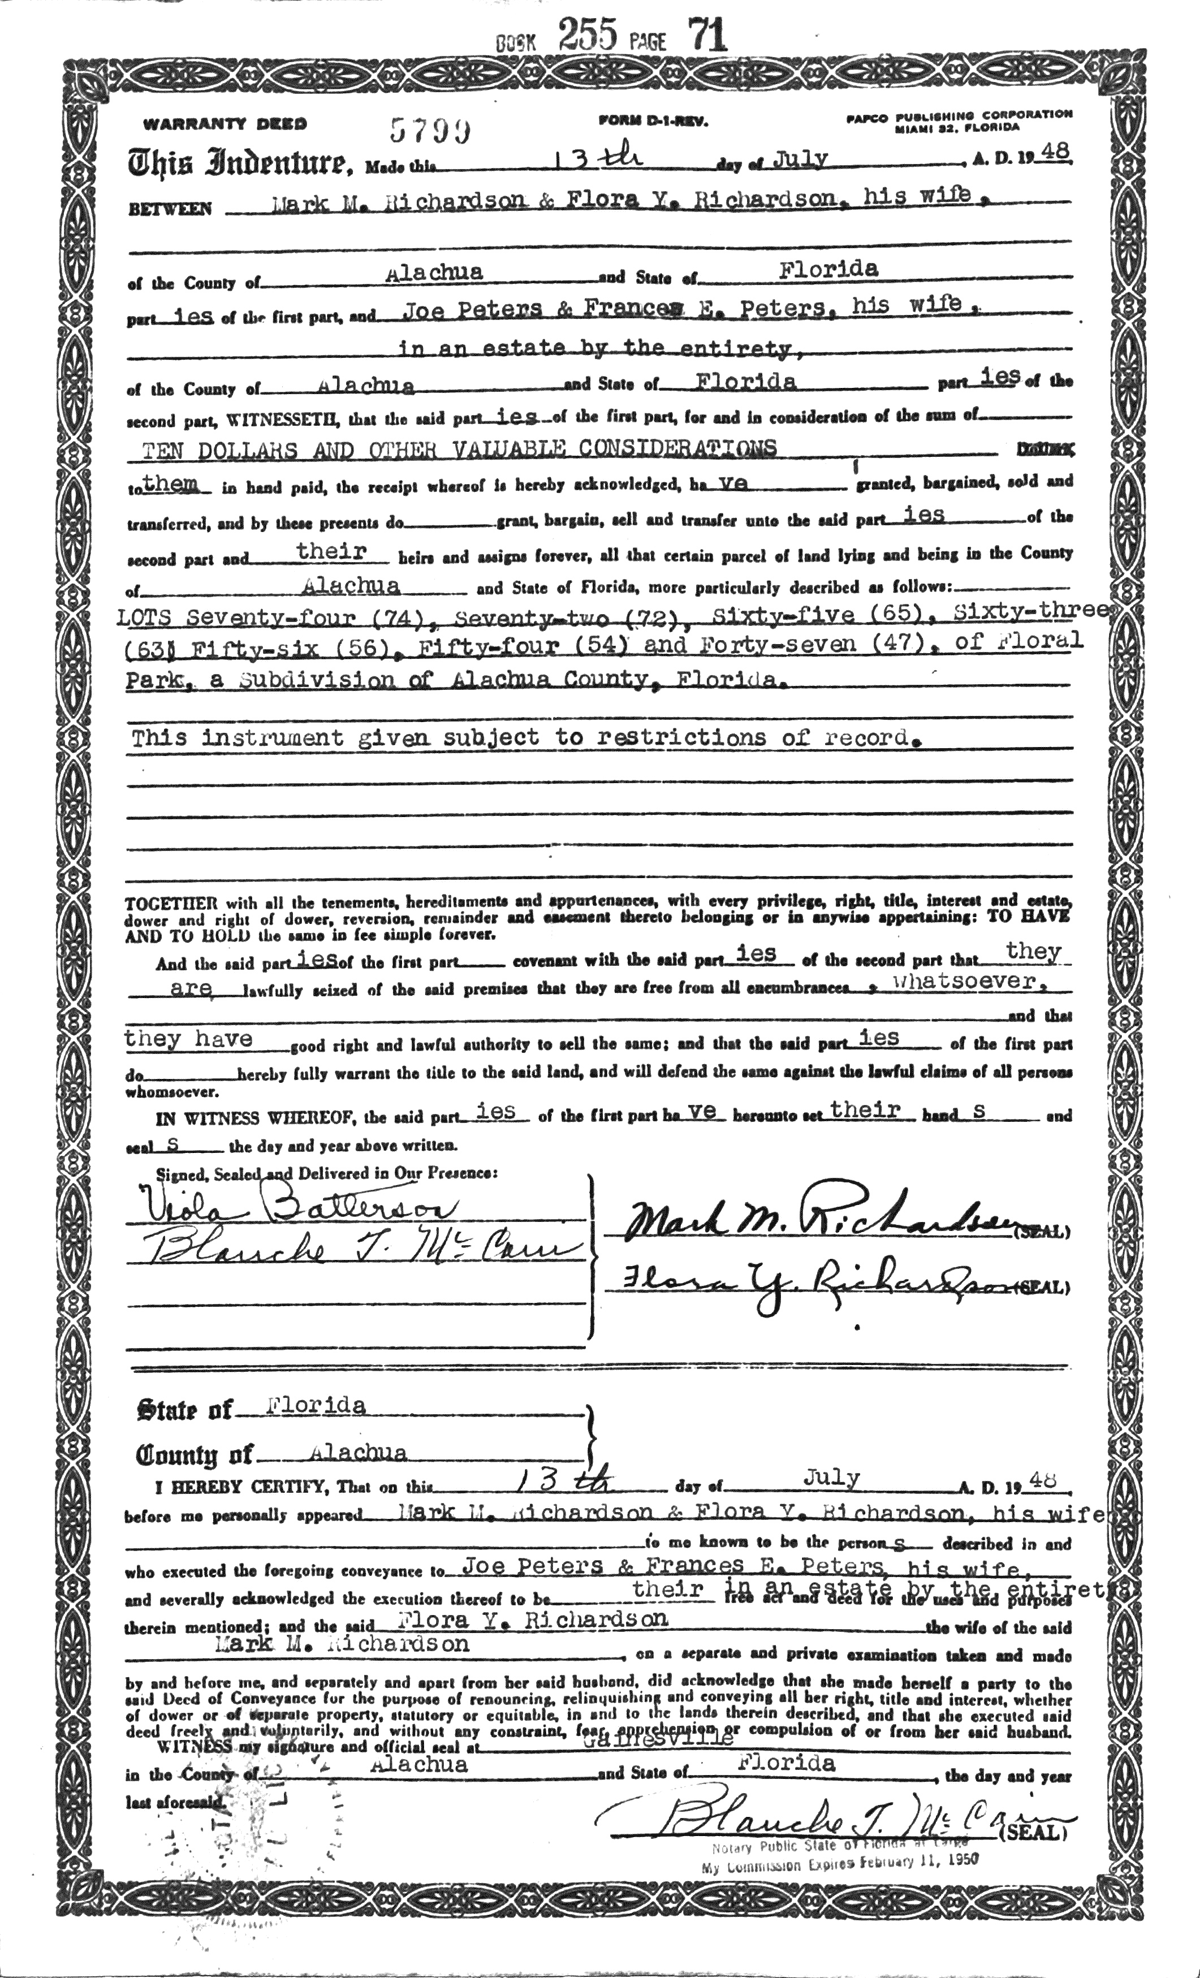 BOOK 255 PAGE 71
WARRANTY DEED 5799 FORM D-1-REV. PAPCO PUBLISHING CORPORATION
MIAMI 32, FLORIDA
This Indenture, Made this 13th day of July, A. D. 1948,
BETWEEN Mark M. Richardson & Flora Y. Richardson, his wife,
of the County of Alachua and State of Florida
part ies of the first part, and Joe Peters & Frances E. Peters, his wife,
in an estate by the entirety,
of the County of Alachua and State of Florida part ies of the
second part, WITNESSETH, that the said part ies of the first part, for and in consideration of the sum of
TEN DOLLARS AND OTHER VALUABLE CONSIDERATIONS Dollars,
to them in hand paid, the receipt whereof is hereby acknowledged, ha ve granted, bargained, sold and
transferred, and by these presents do grant, bargain, sell and transfer unto the said part ies of the
second part and their heirs and assigns forever, all that certain parcel of land lying and being in the County
of Alachua and State of Florida, more particularly described as follows:
LOTS Seventy-four (74), Seventy-two (72), Sixty-five (65), Sixty-three
(63) Fifty-six (56), Fifty-four (54) and Forty-seven (47), of Floral
Park, a Subdivision of Alachua County, Florida.
This instrument given subject to restrictions of record.
TOGETHER with all the tenements, hereditaments and appurtenances, with every privilege, right, title, interest and estate,
dower and right of dower, reversion, remainder and easement thereto belonging or in anywise appertaining: TO HAVE
AND TO HOLD the same in fee simple forever.
And the said part ies of the first part covenant with the said part ies of the second part that they
are lawfully seized of the said premises that they are free from all encumbrances, whatsoever,
and that
they have good right and lawful authority to sell the same; and that the said part ies of the first part
do hereby fully warrant the title to the said land, and will defend the same against the lawful claims of all persons
whomsoever.
IN WITNESS WHEREOF, the said part ies of the first part ha ve hereunto set their hand s and
seal s the day and year above written.
Signed, Sealed and Delivered in Our Presence:
Viola Batterson
Blanche T. McCain
Mark M. Richardson (SEAL)
Flora Y. Richardson (SEAL)
State of Florida
County of Alachua
I HEREBY CERTIFY, That on this 13th day of July A. D. 1948
before me personally appeared Mark M. Richardson & Flora Y. Richardson, his wife
to me known to be the person s described in and
who executed the foregoing conveyance to Joe Peters & Frances E. Peters, his wife,
in an estate by the entirety
and severally acknowledged the execution thereof to be their free act and deed for the uses and purposes
therein mentioned; and the said Flora Y. Richardson the wife of the said
Mark M. Richardson, on a separate and private examination taken and made
by and before me, and separately and apart from her said husband, did acknowledge that she made herself a party to the
said Deed of Conveyance for the purpose of renouncing, relinquishing and conveying all her right, title and interest, whether
of dower or of separate property, statutory or equitable, in and to the lands therein described, and that she executed said
deed freely and voluntarily, and without any constraint, fear, apprehension or compulsion of or from her said husband.
WITNESS my signature and official seal at Gainesville
in the County of Alachua and State of Florida, the day and year
last aforesaid.
Blanche T. McCain (SEAL)
Notary Public State of Florida at Large
My Commission Expires February 11, 1950